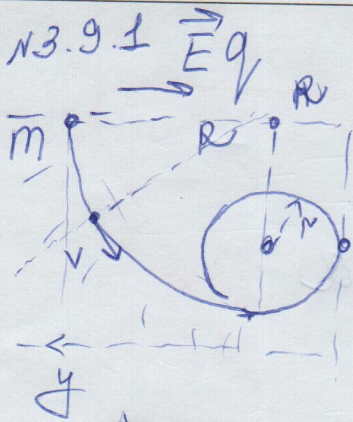 N3.9.1 E q
R
m R
r
v
y